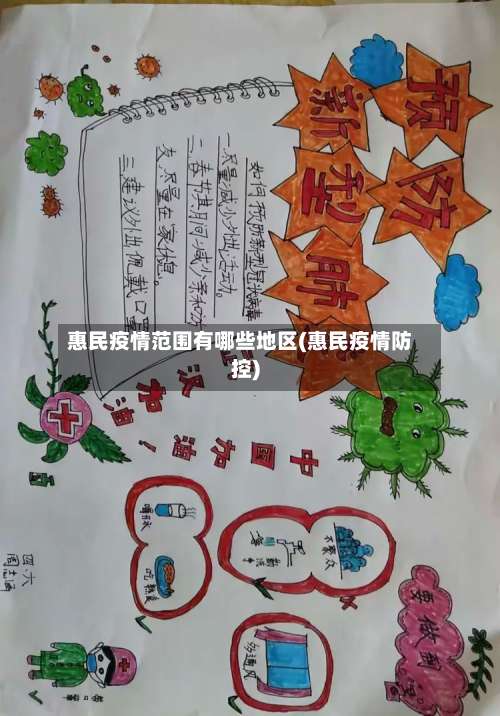 预防
新型肺
如何预防新型冠状病毒
一、尽量减少外出活动。
二、春节期间减少亲和访
友,尽量在家休息。
三、建议外出佩戴口罩
惠民疫情范围有哪些地区(惠民疫情防
控)
汉加油!
中国加油
喝开水
吃熟食
不聚众
勤洗手
多通风
要做到
带口罩
四·六